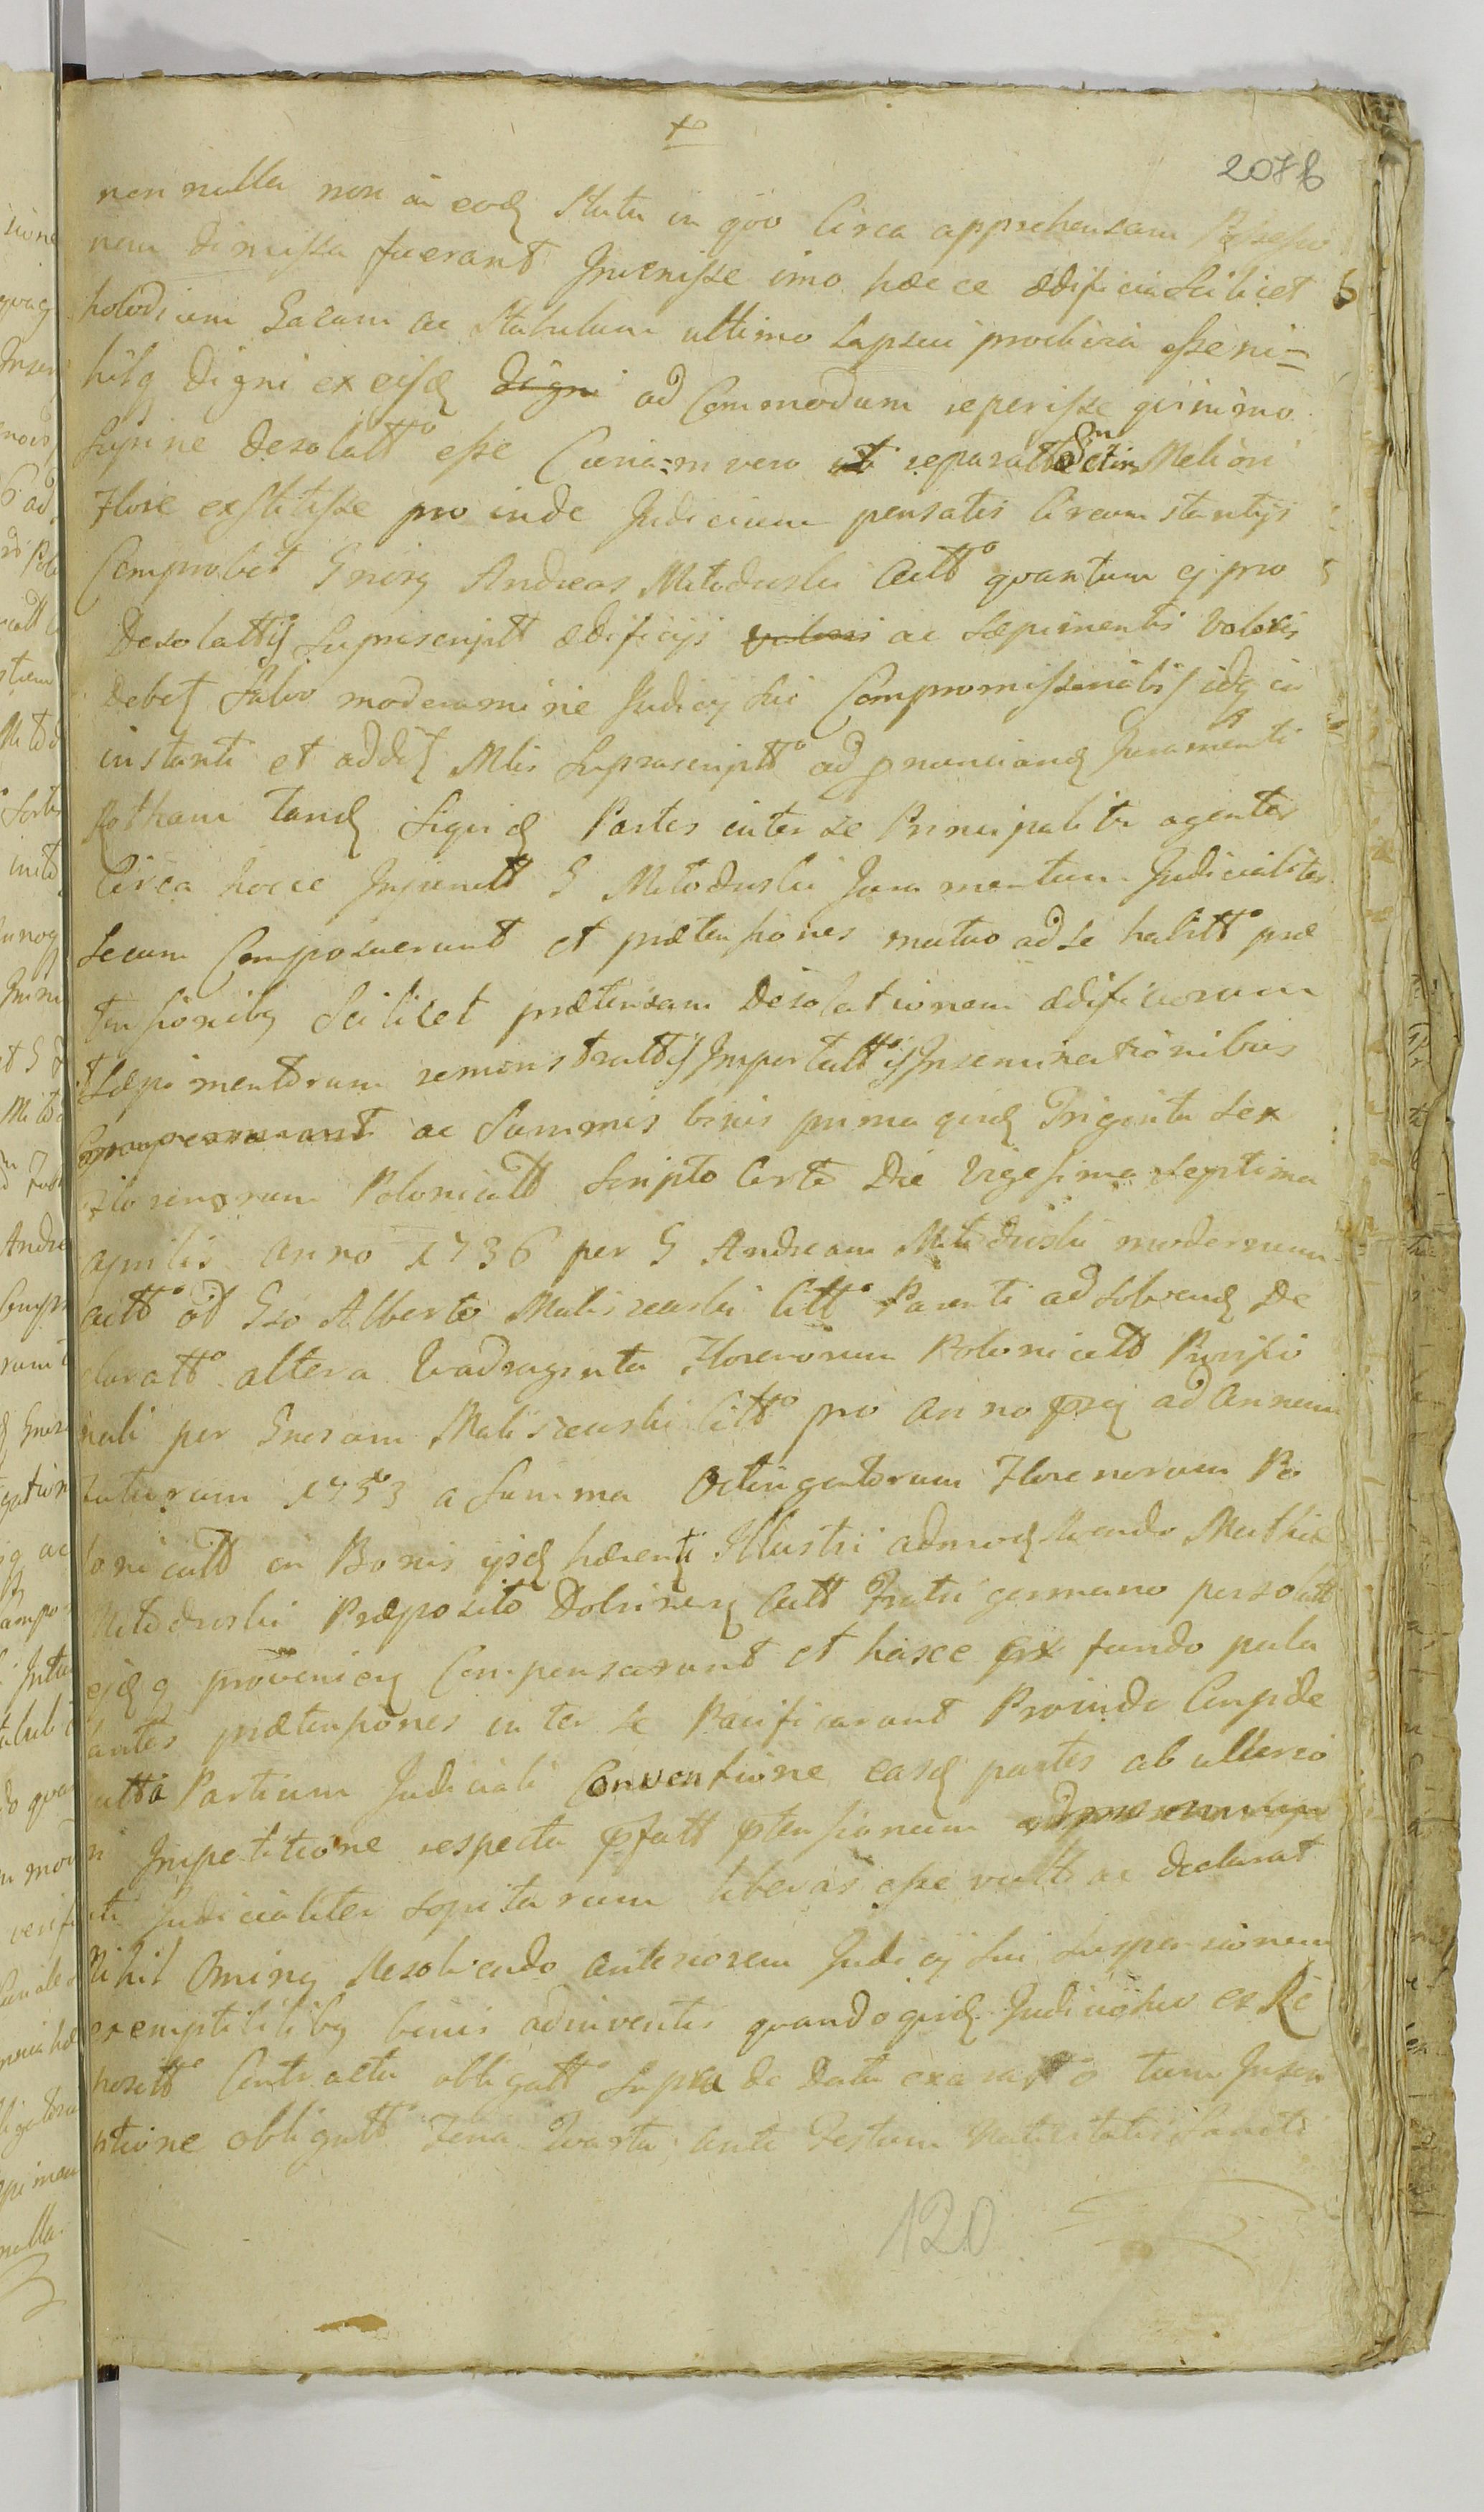 2078
non nulla non in eodq statu in qvo Circa apprehensam Possessio
nem dimissa fuerant Invenisse imo hæcce ædificia scilicet
holodium Gazam ac stabulum ultimo lapsui proclivia esse ni=
hilq digni ex eisdq ad Commodum reperisse qvinimo
supine desolattº esse Cœna=m vero reparatt Etin Meliori
Flore exstitisse pro inde Judicium pensatis Circumstantijs
Comprobet Gnrsq Andreas Mitoduski Actt quantum ej pro
Desolattis suprascriptt ædificijs ac sæpimentis valoris
debetq salvo moderamine Judicij sui Compromissorialis idq in
instanti et addq Mlis suprascripttº ad pnunciandq Juramenti
Rotham tandq Siqvidq Partes inter se Principaliter agentes
Circa hocce Injunctt G Mitoduski Juramentum Judicialiter
secum Composuerunt et prætensiones mutuo ad se habittº præ
tensionibq Scilicet prætensam Desolationem ædificiorum
sæpimentorum remonstrattis Importattis Inseminationibus
ac summis binis prima qvidq Triginta sex
Florenorum Polonicatt scripto Certo Die Vigesima septima
Aprilis Anno 1736 per G Andream Mitoduski modernum
acttº ad Gso Alberto Maliszewski Cittº Parenti ad solvendq De
clarattº altera Qvadraginta Florenorum Polonicatt
per Gnrsum Maliszewski Cittº pro Anno ad Annum
futurum 1753 a summa Octingentorum Florenorum Po
lonicatt in Bonis ijsdq hærentq Illustri admodq Rvendo Mathia
Mitoduski Præposito Dobrinenq Actt Fratri germano persolutt
ejdq q provenienq Compensarunt et hasce ex fundo pulu
lantes prætensiones inter se Pacificarunt Proinde
Partium Judiciali Conventione easdq partes ab ulterio
ri Impetitione respectu pfatt ptensionum
Judicialiter sopitarum liberas esse vult ac declarat
Nihil Ominq Resolvendo anteriorem Judicij sui suspensionem
exemptibilibq binis adinventis quandoqvidq Judicio huc ex Re
positt Contractu obligattº supra de Data exarattº tum Inscri
ptione obligattº Feria Qvarta ante Festum Nativitatis Sancti
120